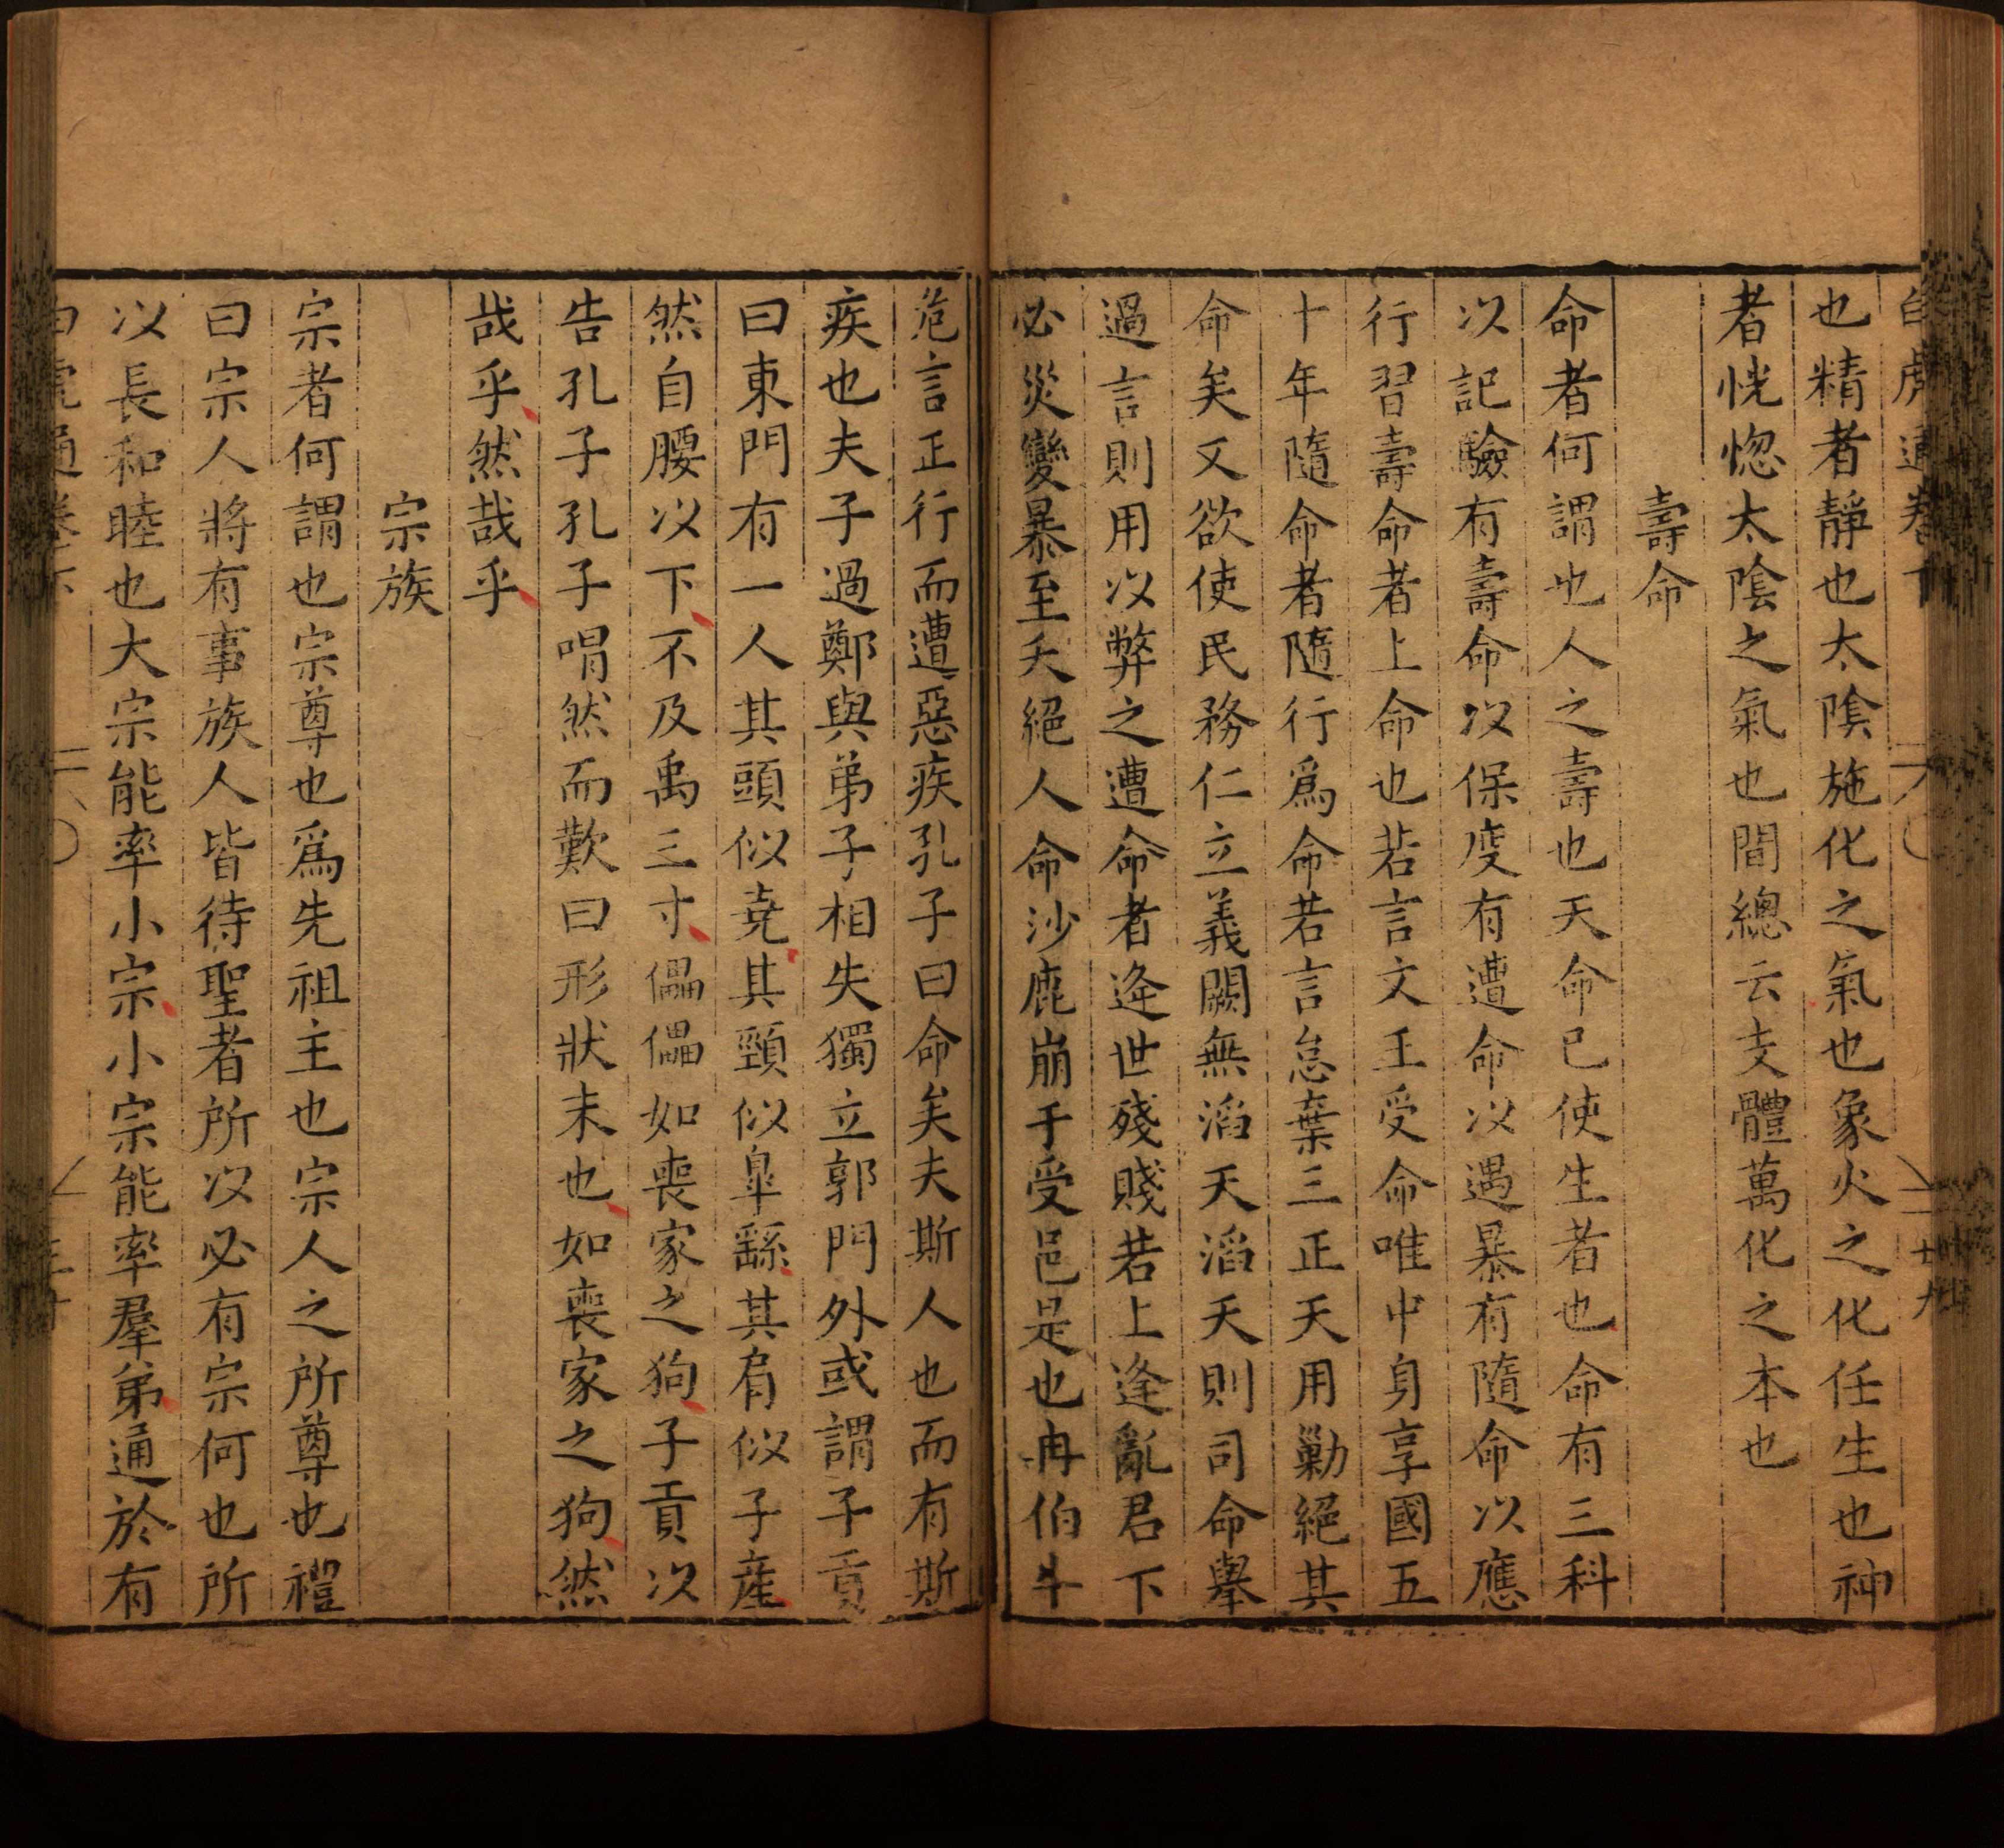 白虎通卷下
廿九
也精者靜也太陰施化之氣也象火之化任生也神
者恍惚太陰之氣也間總云支體萬化之本也
壽命
命者何謂也人之壽也天命已使生者也命有三科
以記驗有壽命以保度有遭命以遇暴有隨命以應
行習壽命者上命也若言文王受命唯中身享國五
十年隨命者隨行爲命若言怠棄三正天用勦絕其
命矣又欲使民務仁立義闕無滔天滔天則司命舉
過言則用以弊之遭命者逢世殘賊若上逢亂君下
必災變暴至夭絕人命沙鹿崩于受邑是也冉伯牛
危言正行而遭惡疾孔子曰命矣夫斯人也而有斯
疾也夫子過鄭與弟子相失獨立郭門外或謂子貢
曰東門有一人其頭似堯其頸似皐繇其肩似子產
然自腰以下不及禹三寸儡儡如喪家之狗子貢以
告孔子孔子喟然而歎曰形狀未也如喪家之狗然
哉乎然哉乎
宗族
宗者何謂也宗尊也爲先祖主也宗人之所尊也禮
曰宗人將有事族人皆待聖者所以必有宗何也所
以長和睦也大宗能率小宗小宗能率羣弟通於有
白虎通卷下